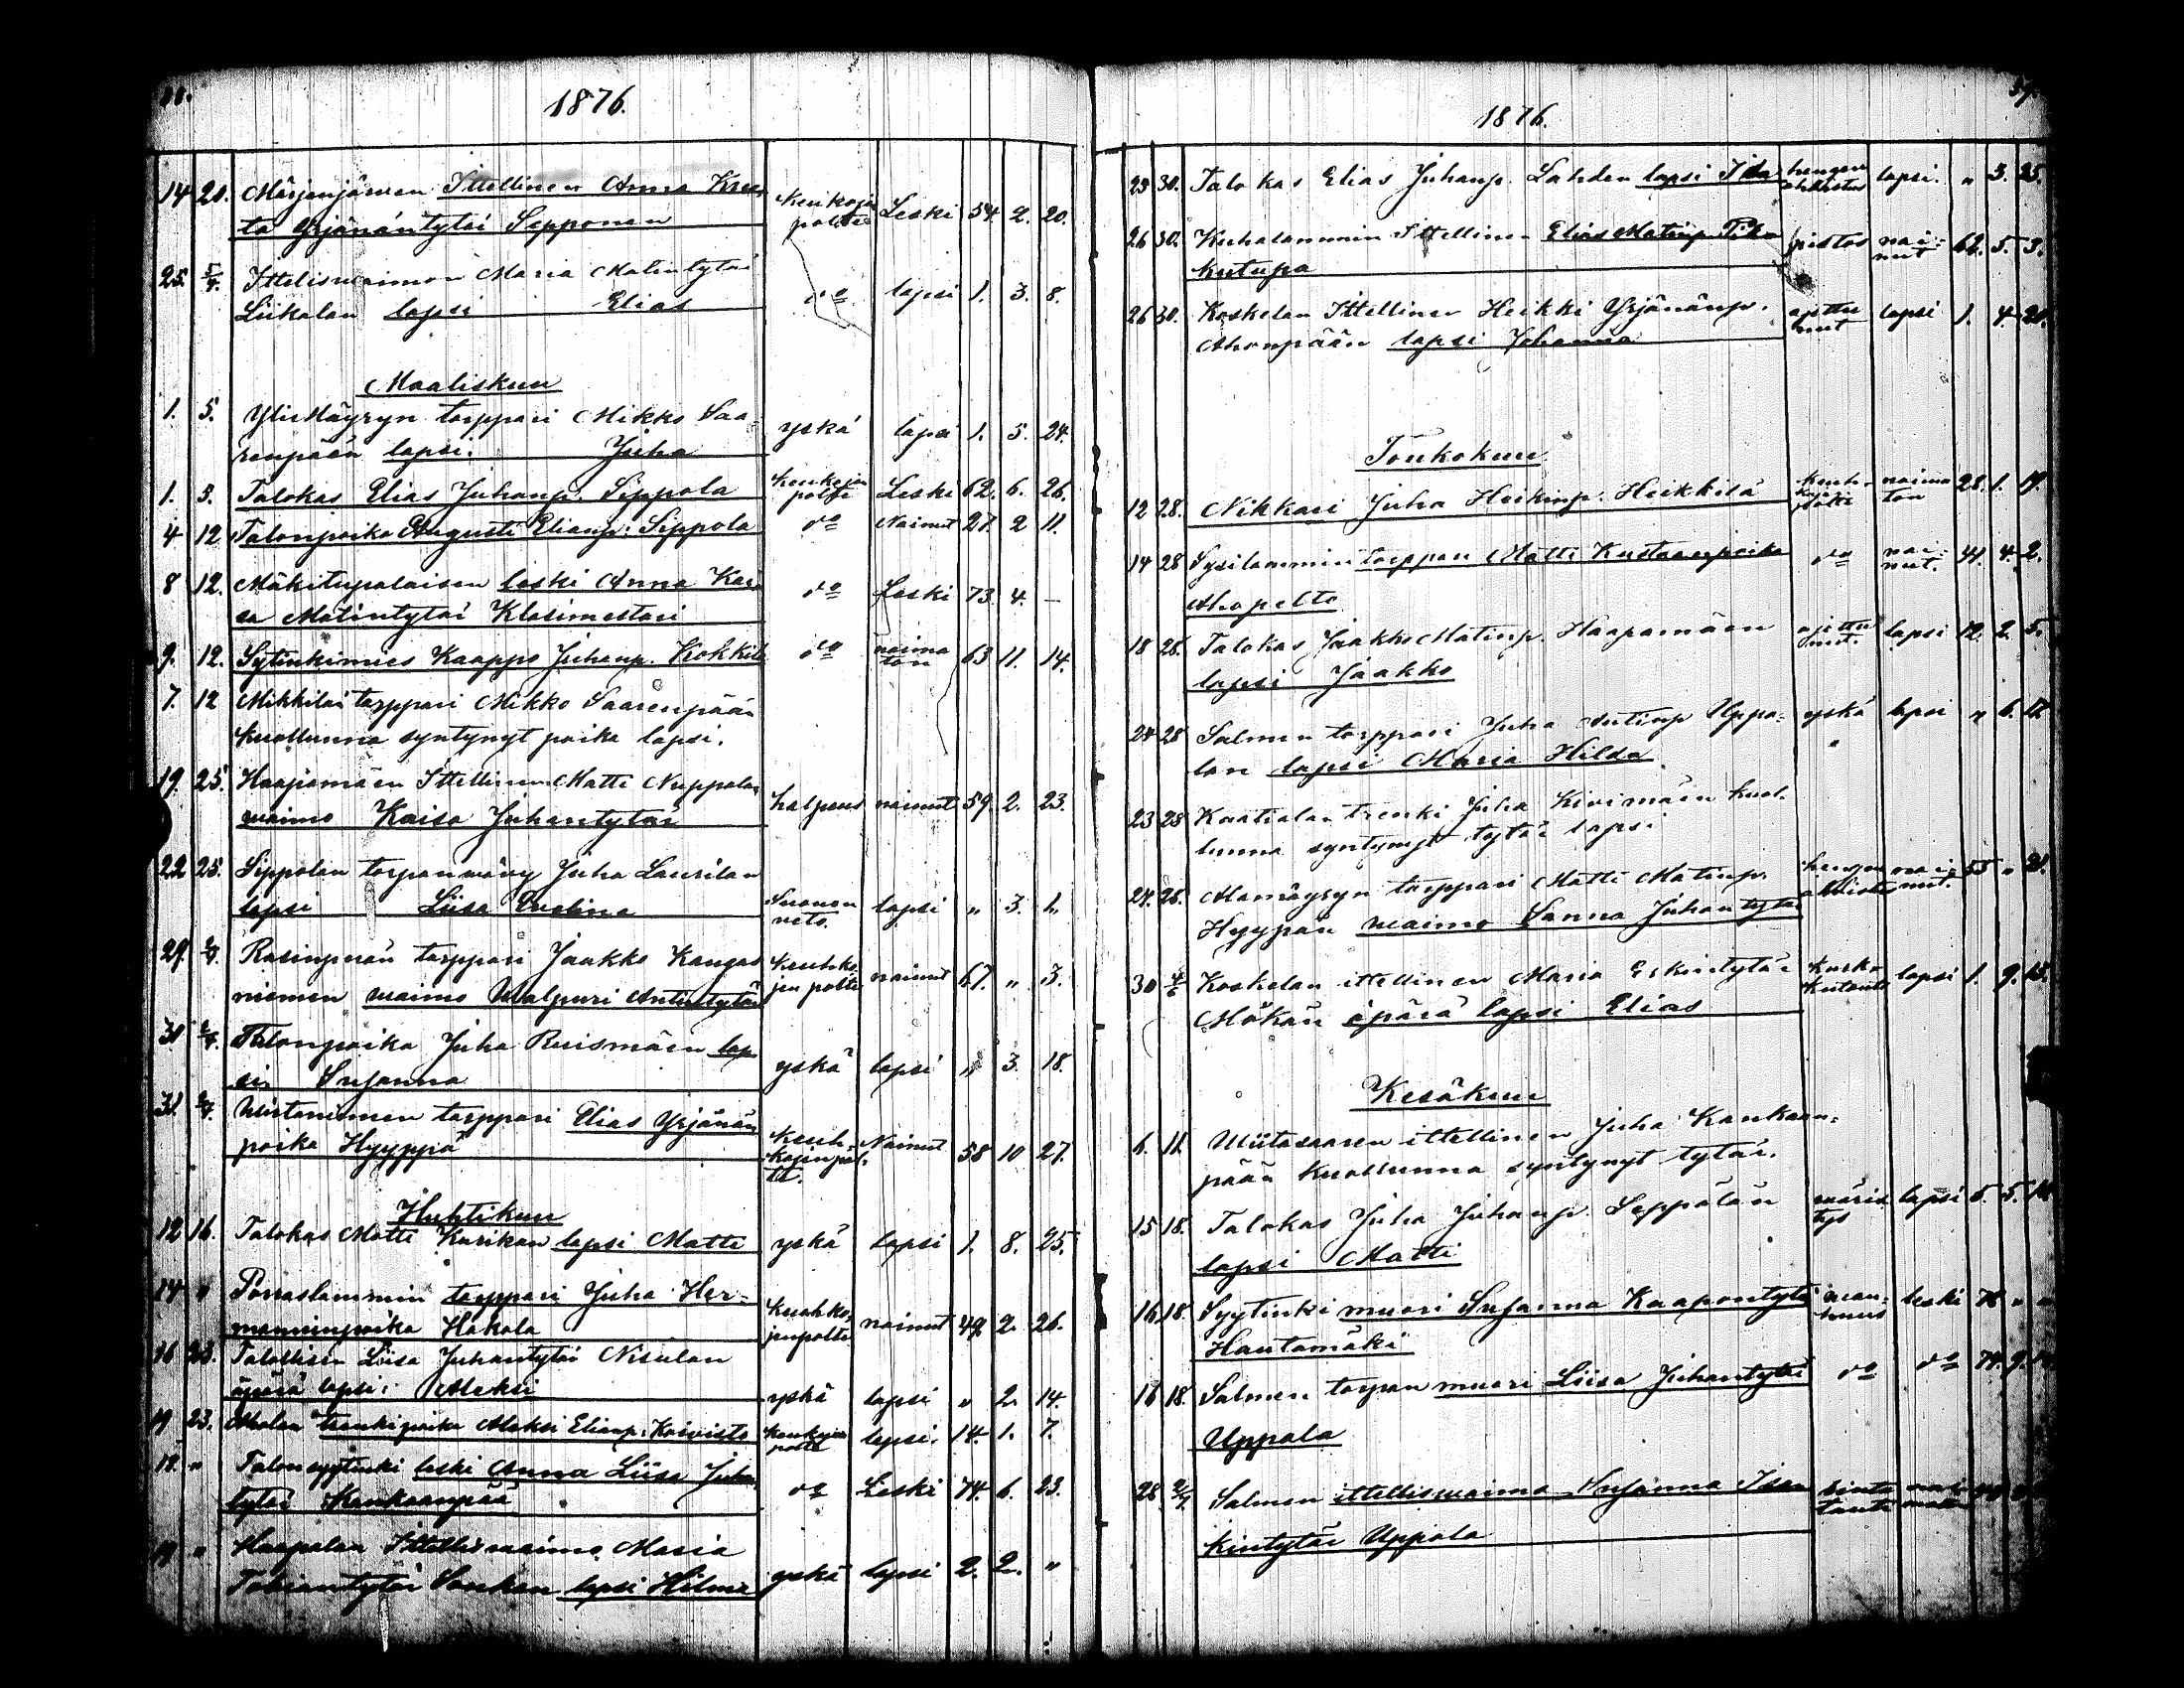 1876.
14 20. Märjenjärven Ittellinen Anna Kreeta Yrjänäntytär Sepponen Keuhkoja poltte Leski 54 2. 20.
25. 5/4. Ittelisvaimon Maria Matintytär
Liikalan lapsi Elias do lapsi 1. 3. 8.
Maaliskuu
1. 5. Yli Mäyryn torppari Mikko Saa-
renpään lapsi. Juha yskä lapsi 1. 5. 24.
1. 5. Talokas Elias Juhanp. Sippola Leski 62. 6. 26.
4 12 Talonpoika Augusti Elianp: Sippola do Nainut 27. 2 11.
8 12. Mäkitupalaisen leski Anna Kai-
sa Matintytär Klasimestari do Leski 73. 4. —
9. 12. Sytinkimies Kaappo Juhanp. Kokkila do naima
ton 63 11. 14.
7. 12 Mikkilän torppari Mikko Saarenpään
kuollunna syntynyt poika lapsi.
19. 25. Haapamäen Ittellinen Matti Nuppolan
waimo Kaisa Juhantytär halpaus nainut 59. 2. 23.
22 25. Sippolan torpanwäwy Juha Laurilan
lapsi Liisa Evelina Suonen
veto. lapsi „ 3. 1.
29. 2/4. Rasinperän torppari Jaakko Kangas
niemen waimo Walpuri Antintytär Keuhko
jen poltte nainut 67. „ 3.
31 2/4. Talonpoika Juha Ruismäen lap
si Susanna yskä lapsi „ 3. 18.
31. 2/4. Wirtaniemen torppari Elias Yrjänän
poika Hyyppä Keuh-
kojenpol-
te. Nainut 58 10 27.
Huhtikuu
12 16. Talokas Matti Kurikan lapsi Matti yskä lapsi 1. 8. 25.
14 „ Porraslammin torppari Juha Her-
manninpoika Hakola Keuhko-
jenpolte nainut 49. 2. 26.
16 23. Talollisen Liisa Juhantytär Nisulan
äpärä lapsi: Aleksi yskä lapsi „ 2. 14.
19 23. trenkipoika Aleksi Elianp: Koivisto lapsi. 14. 1. 7.
„ Talonsyytinki leski Anna Liisa Juhan
tytär Kankaanpää do Leski 74. 6. 23.
19 „ Haapalan Ittellisvaimo Maria
Tobiantytär Vonkan lapsi Hilma yskä lapsi 2. 2. „
1876.
25 30. Talokas Elias Juhanp. Lahden lapsi Ida hengen
ahdistus lapsi. „ 3. 25.
26 30. Kuhalammin Ittellinen Elias Matinp. pistos nai-
nut 62. 5. 3.
26 30. Koskelan Ittellinen Heikki Yrjänänp.
Ahonpään lapsi Johanna ajettu
nut lapsi 1. 4. 20.
Toukokuu
12 28. Nikkari Juha Heikinp. Heikkilä naima
ton 28. 1. 19.
14 28 Sysilammin torppari Matti Kustaanpoika
Ahopelto do nai-
nut. 41. 4. 2.
18 28. Talokas Jaakko Matinp. Haapamäen
lapsi Jaakko ajettu
nut. lapsi 12. 2. 5.
24 28 Salmen torppari Juha Antinp Uppa-
lan lapsi Maria Hilda yskä lapsi „ 6. 12
23 28 Kaatialan trenki Juha Kivimäen kuol-
lunna syntynyt tytär lapsi
24. 28. Alamäyryn torppari Matti Matinp.
Hyypän waimo Sanna Juhantytär hengen
ahdistus nai-
nut. 55 „ 21.
30 4/6 Koskelan ittellinen Maria Eskintytär
Mökän äpärä lapsi Elias lapsi 1. 9. 15.
Kesäkuu
6. 11. Wiitasaaren ittellinen Juha Kankaan-
pään kuollunna syntynyt tytär.
15 18. Talokas Juha Juhanp. Seppälän
lapsi Matti lapsi 5. 5.
16 18. Syytinki muori Susanna Kaapontytär
Hautamäki wan-
huus leski 76 „ „
16 18. Salmen torpan muori Liisa Juhantytär
Uppala do do 74. 9.
28 2/7. Salmen ittellisvaimo Susanna Isan
kintytär Uppala